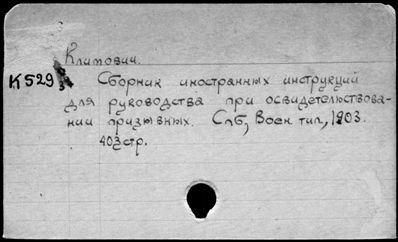 Климович.
К529 Сборник иностранных инструкций
для руководства при освидетельствова-
нии призывных. Спб, Воен. тип, 1903.
403 стр.